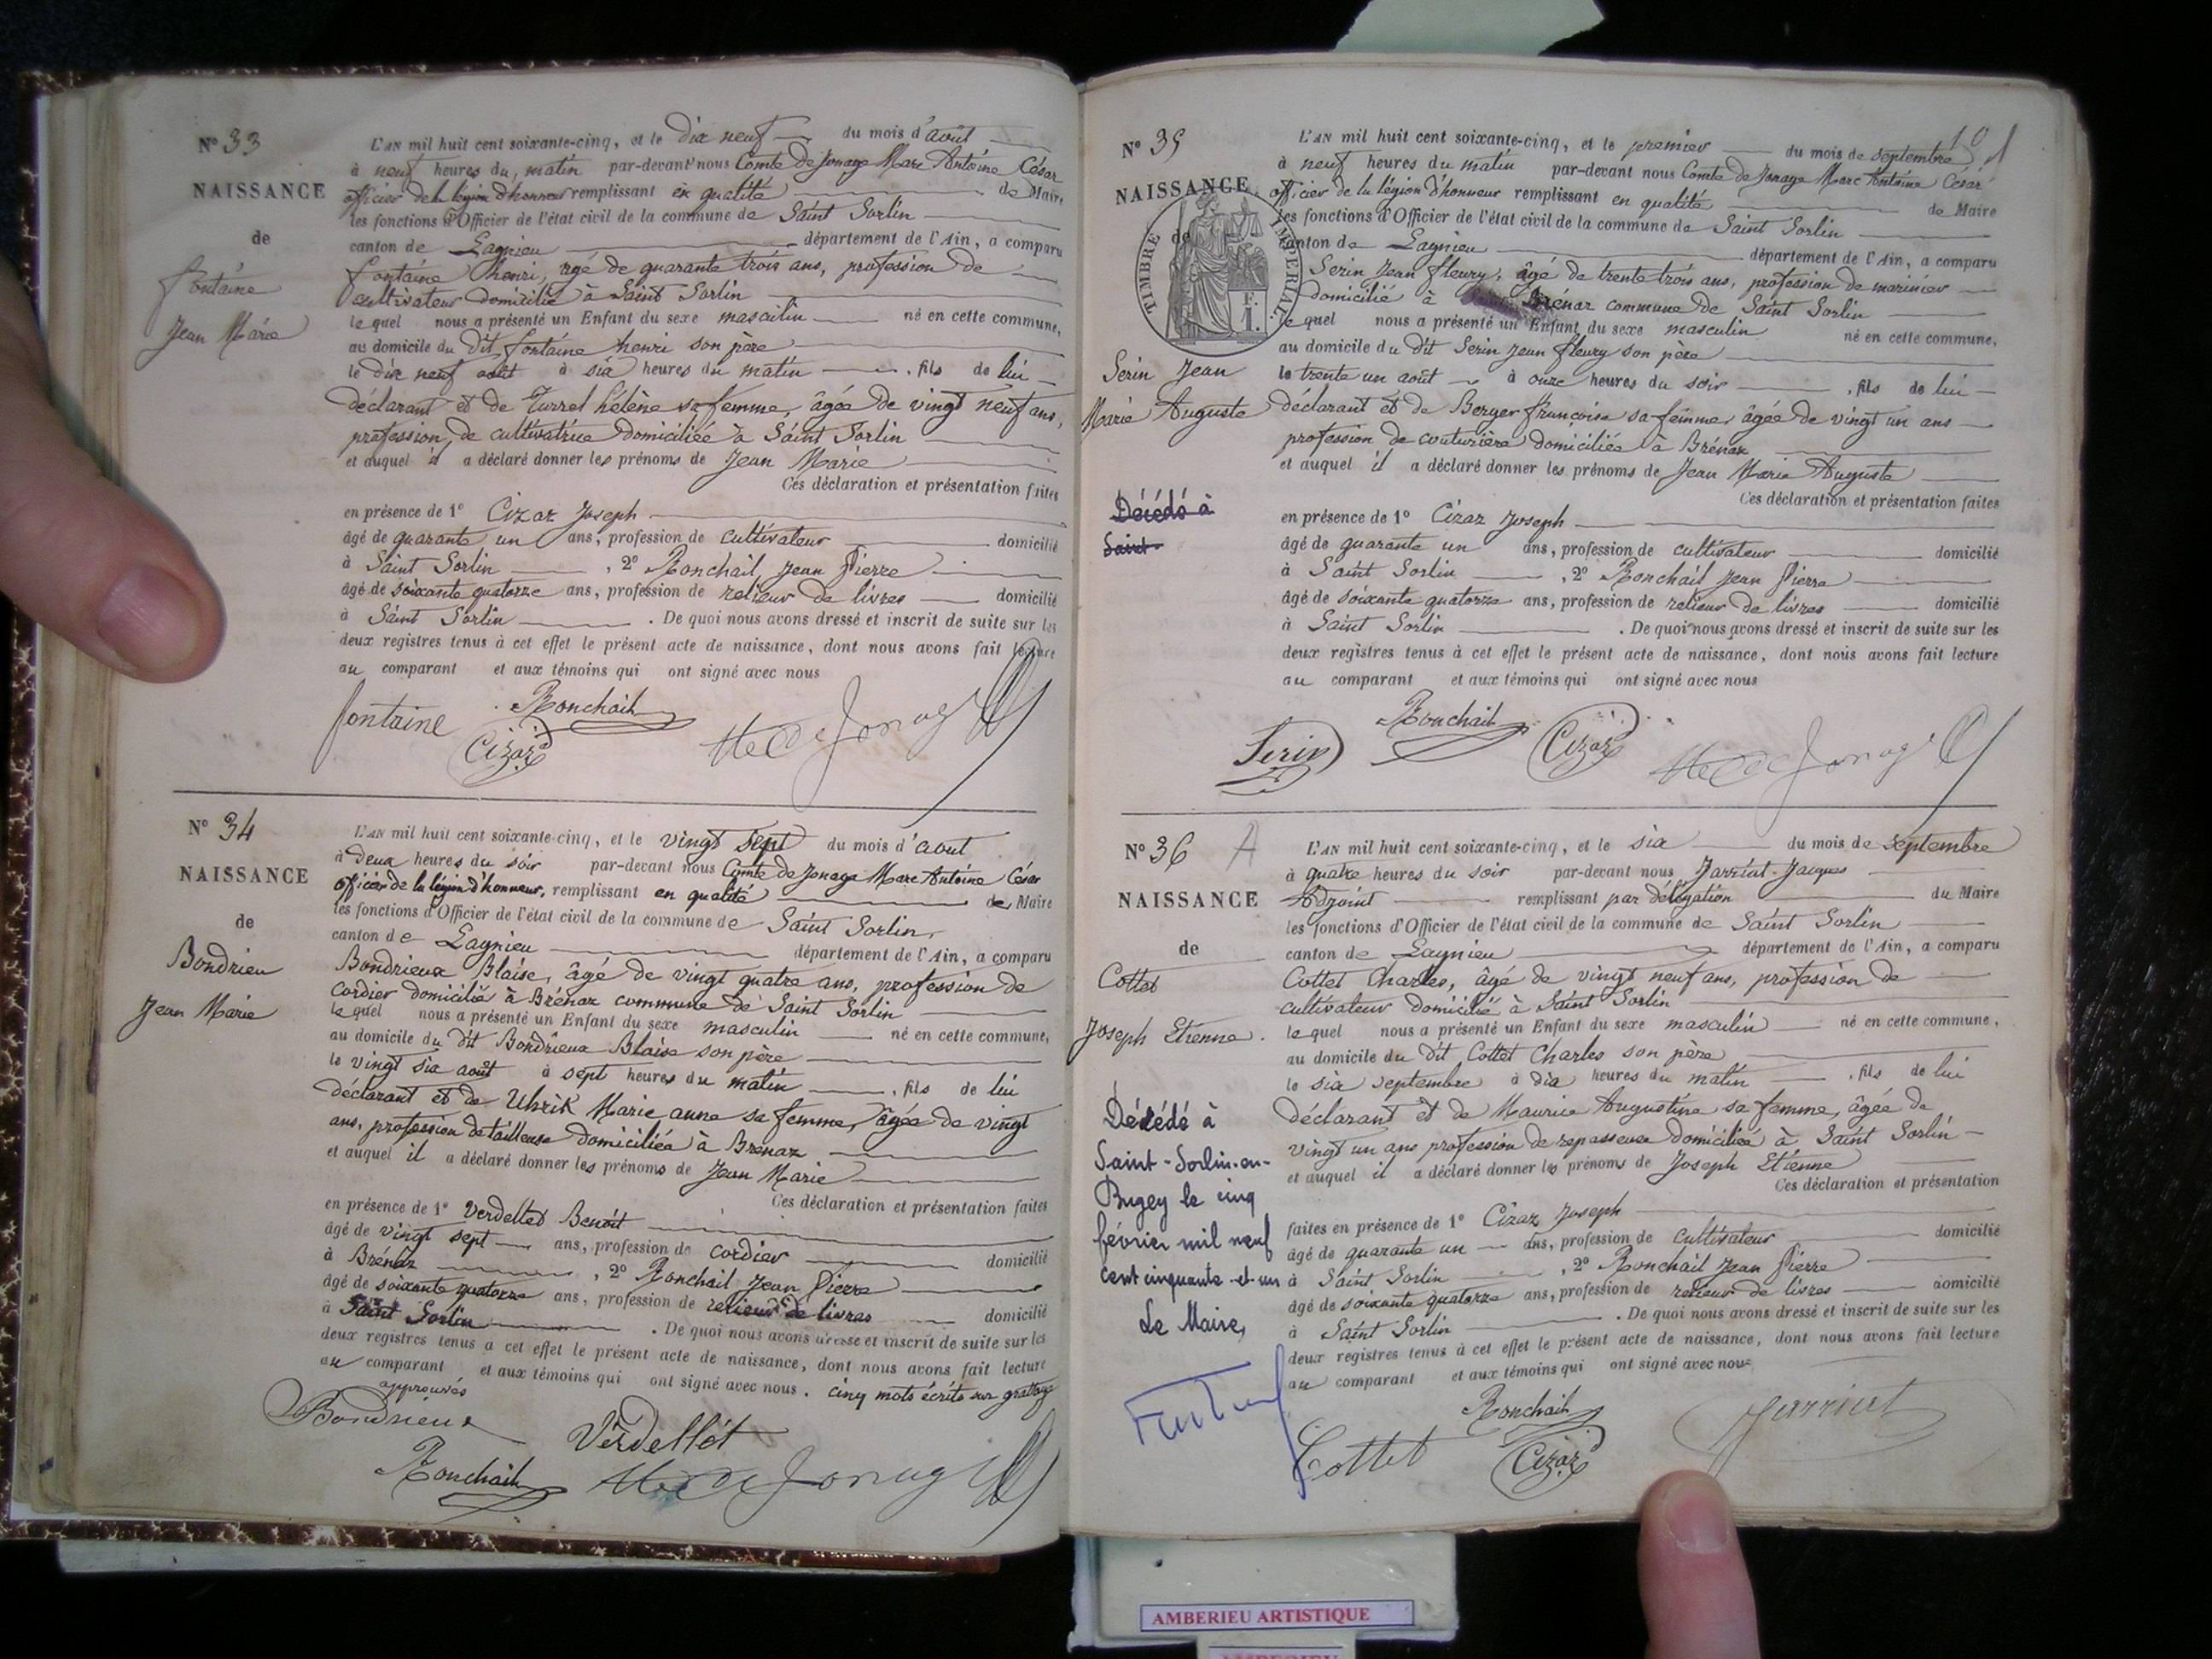 N° 33
NAISSANCE
de
fontaine
Jean Marie
L'AN mil huit cent soixante-cinq, et le dix neuf du mois d'août
à neuf heures du matin par-devant nous Comte de Jonage Marc Antoine César
officier de la légion d'honneur remplissant en qualité de Maire
les fonctions d'Officier de l'état civil de la commune de Saint Sorlin
canton de Lagnieu département de l'Ain, a comparu
fontaine henri, agé de quarante trois ans, profession de
cultivateur domicilié à Saint Sorlin
le quel nous a présenté un Enfant du sexe masculin né en cette commune,
au domicile du dit fontaine henri son père
le dix neuf août à six heures du matin , fils de lui
déclarant et de Turrel hélène sa femme, âgée de vingt neuf ans,
profession de cultivatrice domiciliée à Saint Sorlin
et auquel il a déclaré donner les prénoms de Jean Marie
Ces déclaration et présentation faites
en présence de 1° Cizaz Joseph
âgé de quarante un ans, profession de cultivateur domicilié
à Saint Sorlin , 2° Ronchail Jean Pierre
âgé de soixante quatorze ans, profession de relieur de livres domicilié
à Saint Sorlin . De quoi nous avons dressé et inscrit de suite sur les
deux registres tenus à cet effet le présent acte de naissance, dont nous avons fait lecture
au comparant et aux témoins qui ont signé avec nous
fontaine Ronchail
Cizaz M C de Jonage
N° 34
NAISSANCE
de
Bondrieu
Jean Marie
L'AN mil huit cent soixante-cinq, et le vingt sept du mois d'août
à deux heures du soir par-devant nous Comte de Jonage Marc Antoine César
officier de la légion d'honneur, remplissant en qualité de Maire
les fonctions d'Officier de l'état civil de la commune de Saint Sorlin,
canton de Lagnieu département de l'Ain, a comparu
Bondrieux Blaise, âgé de vingt quatre ans, profession de
cordier domicilié à Brénaz commune de Saint Sorlin
le quel nous a présenté un Enfant du sexe masculin né en cette commune,
au domicile du dit Bondrieux Blaise son père
le vingt six août à sept heures du matin , fils de lui
déclarant et de Uhrik Marie anne sa femme, âgée de vingt
ans, profession de tailleuse domiciliée à Brénaz
et auquel il a déclaré donner les prénoms de Jean Marie
Ces déclaration et présentation faites
en présence de 1° Verdellet Benoit
âgé de vingt sept ans, profession de cordier domicilié
à Brénaz , 2° Ronchail Jean Pierre
âgé de soixante quatorze ans, profession de relieur de livres domicilié
à Saint Sorlin . De quoi nous avons dressé et inscrit de suite sur les
deux registres tenus à cet effet le présent acte de naissance, dont nous avons fait lecture
au comparant et aux témoins qui ont signé avec nous. cinq mots écrits sur grattage
approuvés
Bondrieux Verdellét
Ronchail M C de Jonage
101
N° 35
NAISSANCE
de
TIMBRE IMPERIAL.
F.
1.
Serin Jean
Marie Auguste
Décédé à
Saint-
L'AN mil huit cent soixante-cinq, et le premier du mois de septembre
à neuf heures du matin par-devant nous Comte de Jonage Marc Antoine César
officier de la légion d'honneur remplissant en qualité de Maire
les fonctions d'Officier de l'état civil de la commune de Saint Sorlin
canton de Lagnieu département de l'Ain, a comparu
Serin Jean fleury, âgé de trente trois ans, profession de marinier
domicilié à Brénaz commune de Saint Sorlin
le quel nous a présenté un Enfant du sexe masculin né en cette commune,
au domicile du dit Serin Jean fleury son père
le trente un août à onze heures du soir , fils de lui
déclarant et de Berger françoise sa femme, âgée de vingt un ans
profession de couturière domiciliée à Brénaz
et auquel il a déclaré donner les prénoms de Jean Marie Auguste
Ces déclaration et présentation faites
en présence de 1° Cizaz Joseph
âgé de quarante un ans, profession de cultivateur domicilié
à Saint Sorlin , 2° Ronchail Jean Pierre
âgé de soixante quatorze ans, profession de relieur de livres domicilié
à Saint Sorlin . De quoi nous avons dressé et inscrit de suite sur les
deux registres tenus à cet effet le présent acte de naissance, dont nous avons fait lecture
au comparant et aux témoins qui ont signé avec nous
Serin Ronchail Cizaz M C de Jonage
N° 36
NAISSANCE
de
Cottet
Joseph Etienne.
Décédé à
Saint-Sorlin-en-
Bugey le cinq
février mil neuf
cent cinquante-et-un
Le Maire,
L'AN mil huit cent soixante-cinq, et le six du mois de septembre
à quatre heures du soir par-devant nous Jarrint Jacques
Adjoint remplissant par délégation du Maire
les fonctions d'Officier de l'état civil de la commune de Saint Sorlin
canton de Lagnieu département de l'Ain, a comparu
Cottet Charles, âgé de vingt neuf ans, profession de
cultivateur domicilié à Saint Sorlin
le quel nous a présenté un Enfant du sexe masculin né en cette commune,
au domicile du dit Cottet Charles son père
le six septembre à dix heures du matin , fils de lui
déclarant et de Maurice Augustine sa femme, âgée de
vingt un ans profession de repasseuse domiciliée à Saint Sorlin
et auquel il a déclaré donner les prénoms de Joseph Etienne
Ces déclaration et présentation
faites en présence de 1° Cizaz Joseph
âgé de quarante un ans, profession de cultivateur domicilié
à Saint Sorlin , 2° Ronchail Jean Pierre
âgé de soixante quatorze ans, profession de relieur de livres domicilié
à Saint Sorlin . De quoi nous avons dressé et inscrit de suite sur les
deux registres tenus à cet effet le présent acte de naissance, dont nous avons fait lecture
au comparant et aux témoins qui ont signé avec nous
Ronchail Jarrint
Cottet Cizaz
AMBERIEU ARTISTIQUE
AMBERIEU